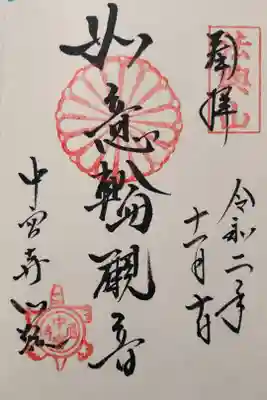 奉拝
法興山
令和二年
十一月
如意輪觀音
中宮寺門跡